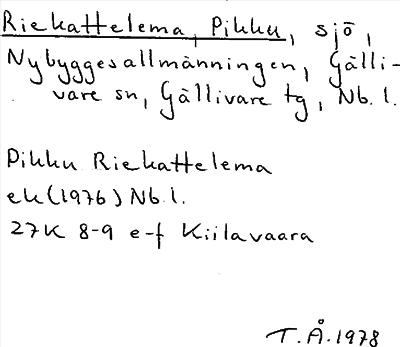 Riekattelema, Pikku, sjö,
Nybyggesallmänningen, Gälli-
vare sn, Gällivare tg, Nb.l.
Pikku Riekattelema
ek(1976) Nb.l.
27K 8-9 e-f Kiilavaara
T.Å.1978